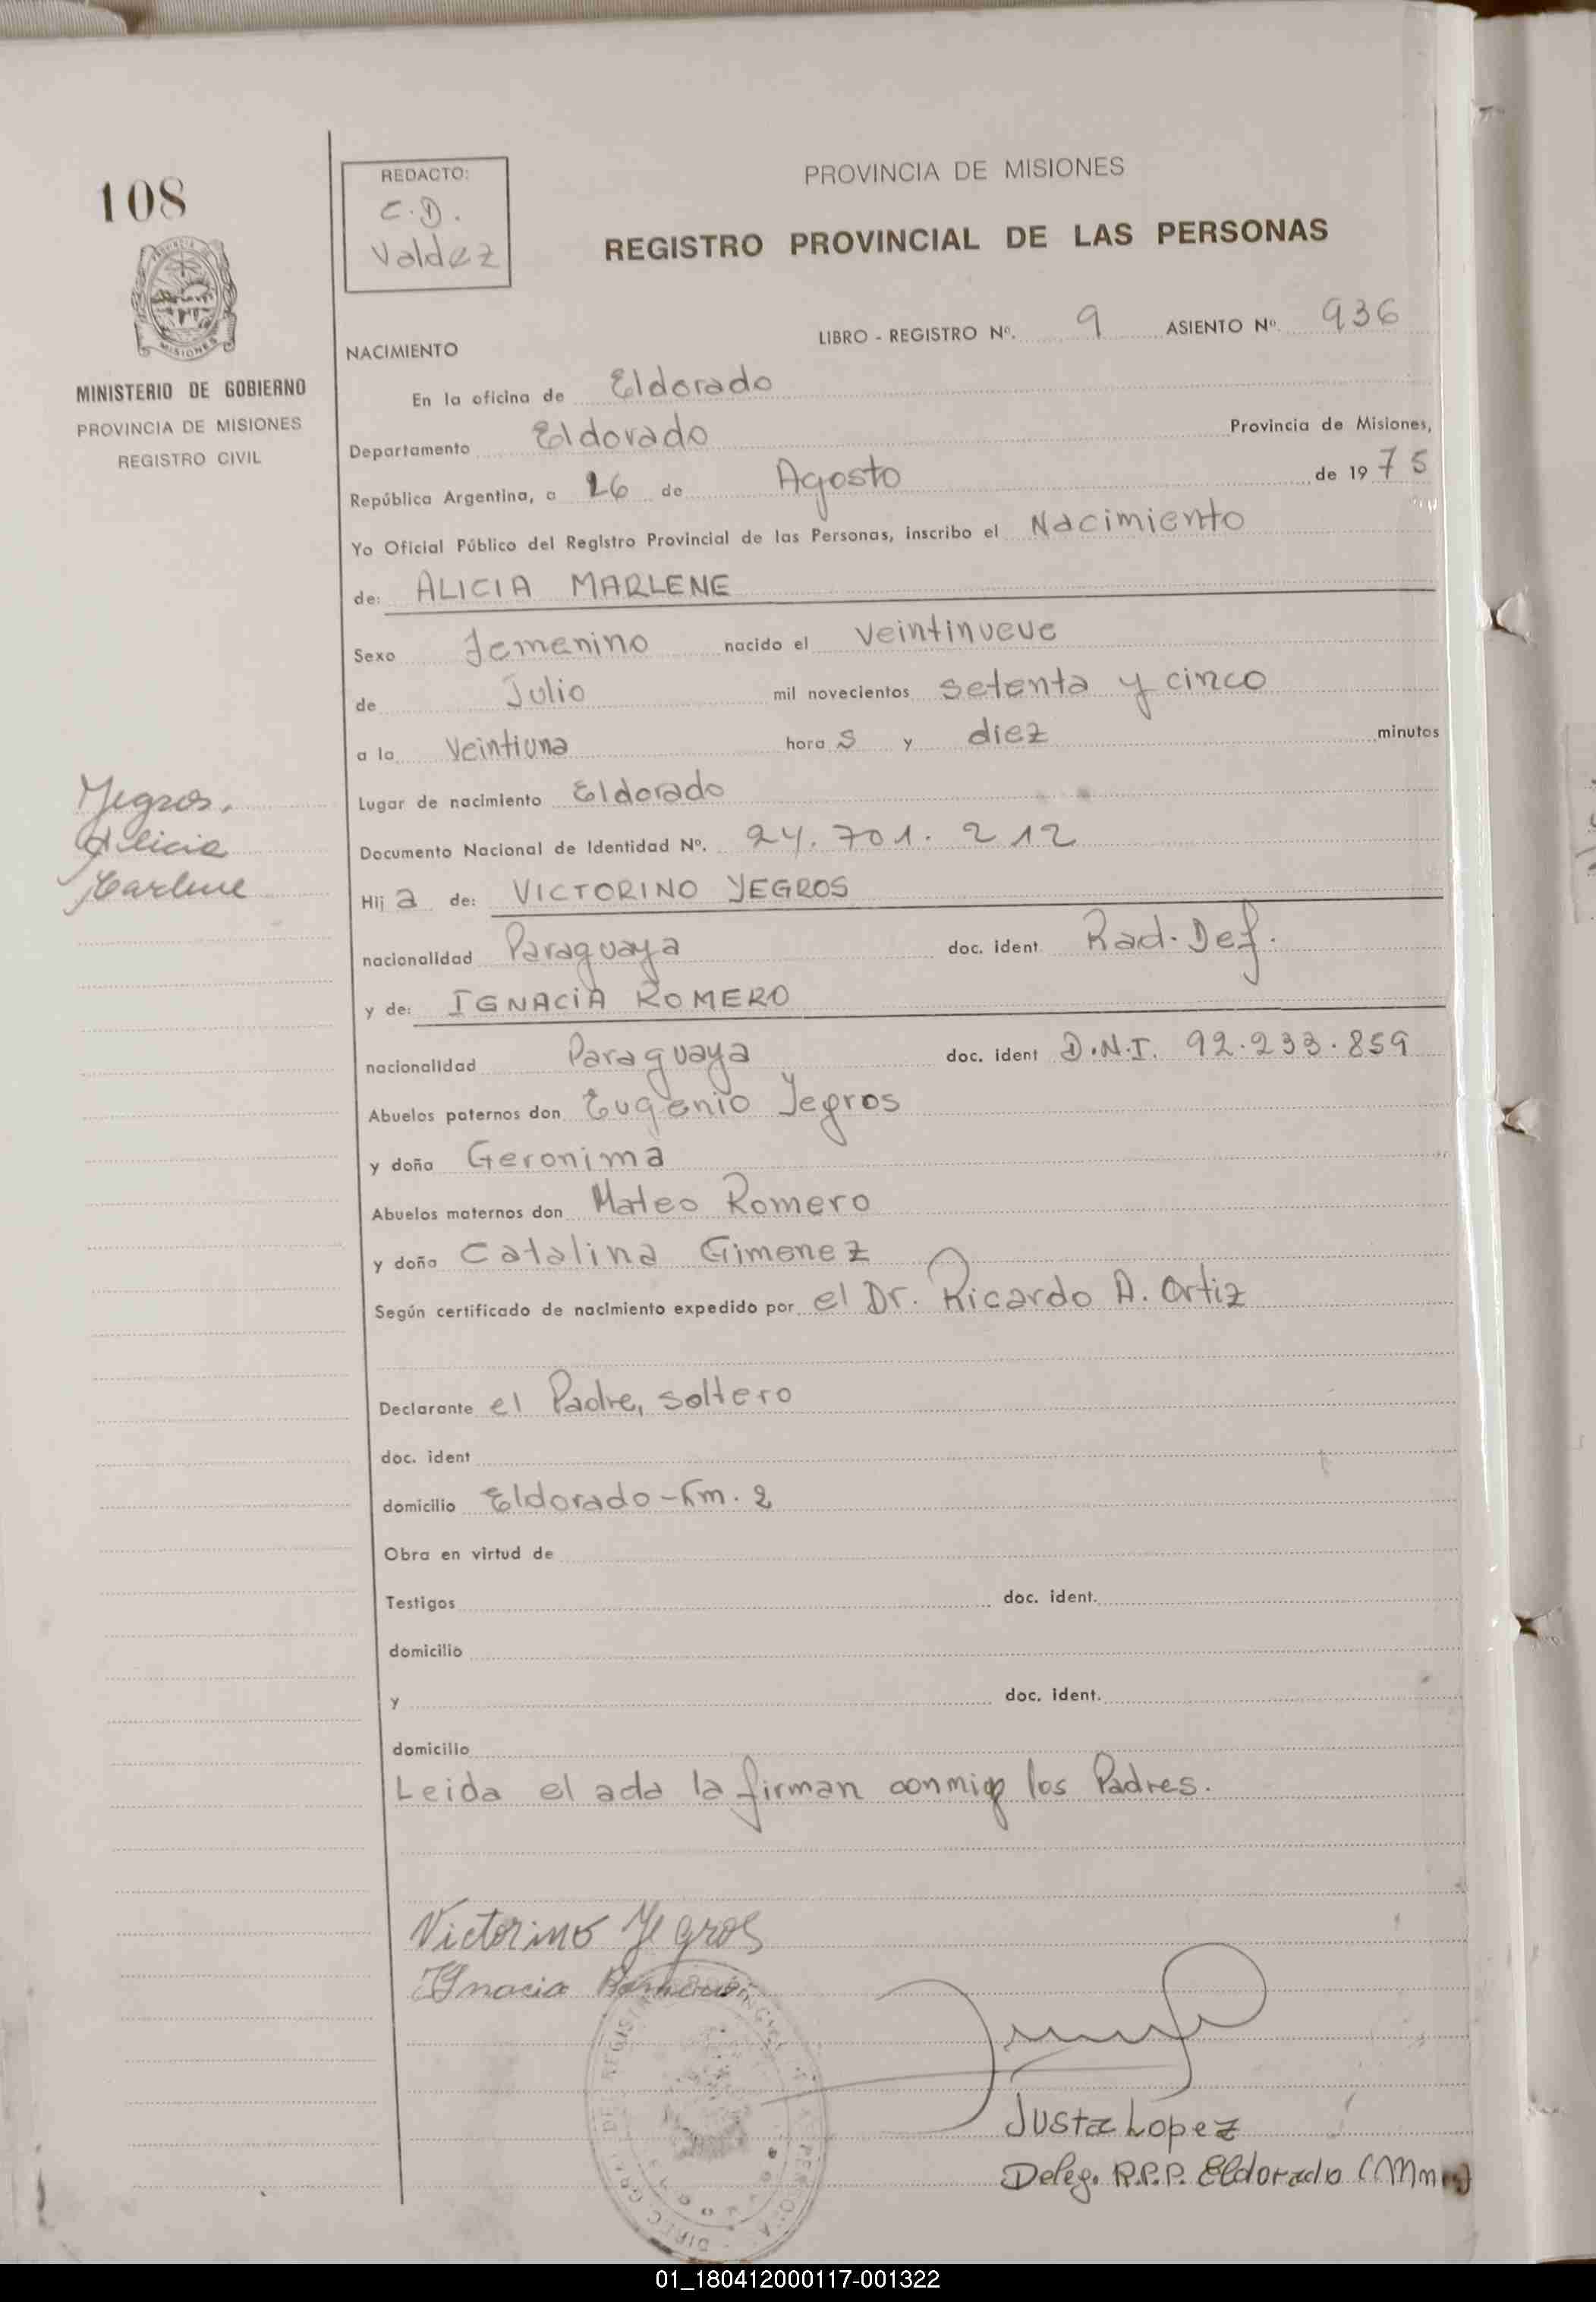 108
REDACTO:
C.D.
Valdez
PROVINCIA DE MISIONES
REGISTRO PROVINCIAL DE LAS PERSONAS
MISIONES
MINISTERIO DE GOBIERNO
PROVINCIA DE MISIONES
REGISTRO CIVIL
LIBRO - REGISTRO Nº. 9 ASIENTO Nº. 936
NACIMIENTO
En la oficina de Eldorado
Departamento Eldorado Provincia de Misiones,
República Argentina, a 26 de Agosto de 1975
Yo Oficial Público del Registro Provincial de las Personas, inscribo el Nacimiento
de: ALICIA MARLENE
Sexo Femenino nacido el veintinueve
de Julio mil novecientos setenta y cinco
a la Veintiuna hora s y diez minutos
Yegros,
Alicia
Marlene
Lugar de nacimiento Eldorado
Documento Nacional de Identidad Nº. 24.701.212
Hij a de: VICTORINO YEGROS
nacionalidad Paraguaya doc. ident Rad. Def.
y de: IGNACIA ROMERO
nacionalidad Paraguaya doc. ident D.N.I. 92.233.859
Abuelos paternos don Eugenio Yegros
y doña Geronima
Abuelos maternos don Mateo Romero
y doña Catalina Gimenez
Según certificado de nacimiento expedido por el Dr. Ricardo A. Ortiz
Declarante el Padre, soltero
doc. ident
domicilio Eldorado-Km. 2
Obra en virtud de
Testigos doc. ident.
domicilio
y doc. ident.
domicilio
Leida el acta la firman conmigo los Padres.
Victorino Yegros
Ygnacia Romero
Justa Lopez
Deleg. R.P.P. Eldorado (Mnes)
01_180412000117-001322